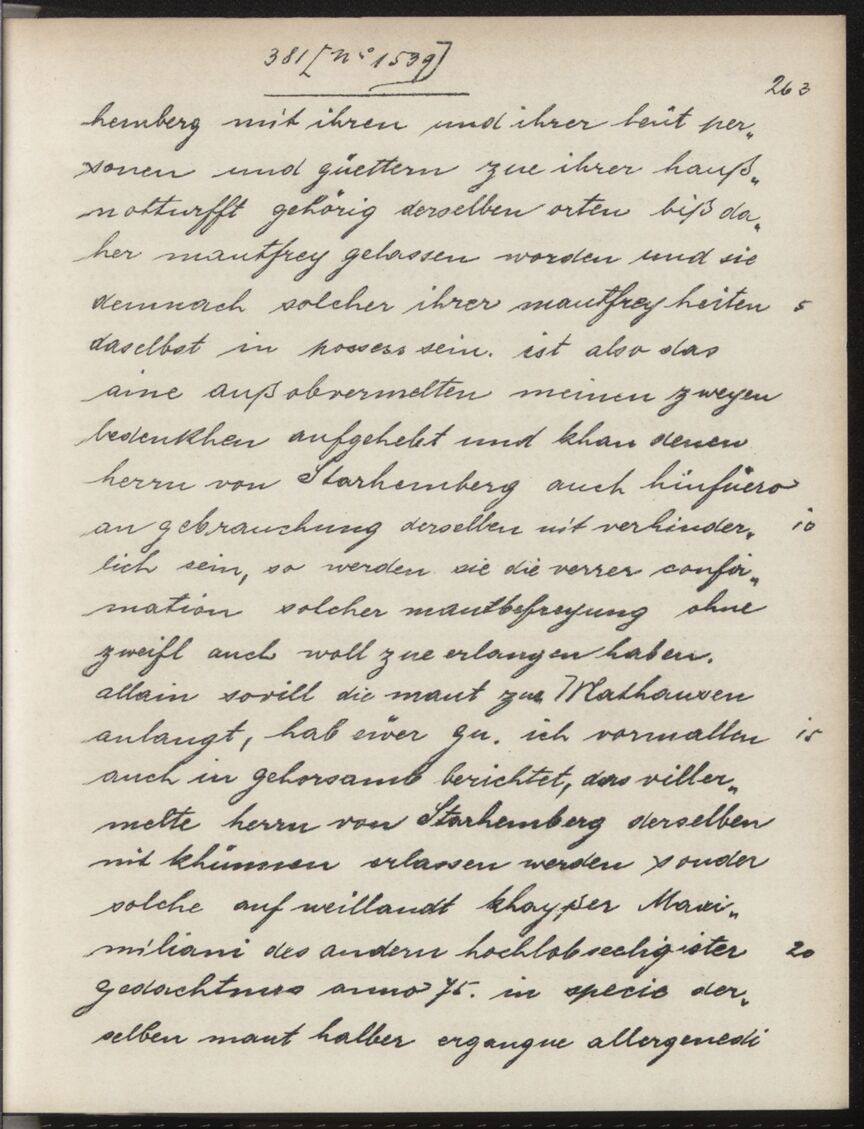 381 [No 1539]
263
hemberg mit ihren und ihrer leüt per„
sonen und güettern zue ihrer hauß„
notturfft gehörig derselben orten biß da„
her mautfrey gelassen worden und sie
demnach solcher ihrer mautfreyheiten 5
daselbst in possess sein. ist also das
aine auß obvermelten meinen zweyen
bedenkhen aufgehebt und khan denen
herrn von Starhemberg auch hinfüero
an gebrauchung derselben nit verhinder„ 10
lich sein, so werden sie die verrer confir„
mation solcher mautbefreyung ohne
zweifl auch woll zue erlangen haben.
allain sovill die maut zue Mathausen
anlangt, hab eüer gn. ich vormallen 15
auch in gehorsamb berichtet, das viller„
melte herrn von Starhemberg derselben
nit khünnen erlassen werden sonder
solche auf weillandt khayßer Maxi„
miliani des andern hochlobseeligister 20
gedachtnus anno 75. in specie der„
selben maut halber ergangne allergenedi